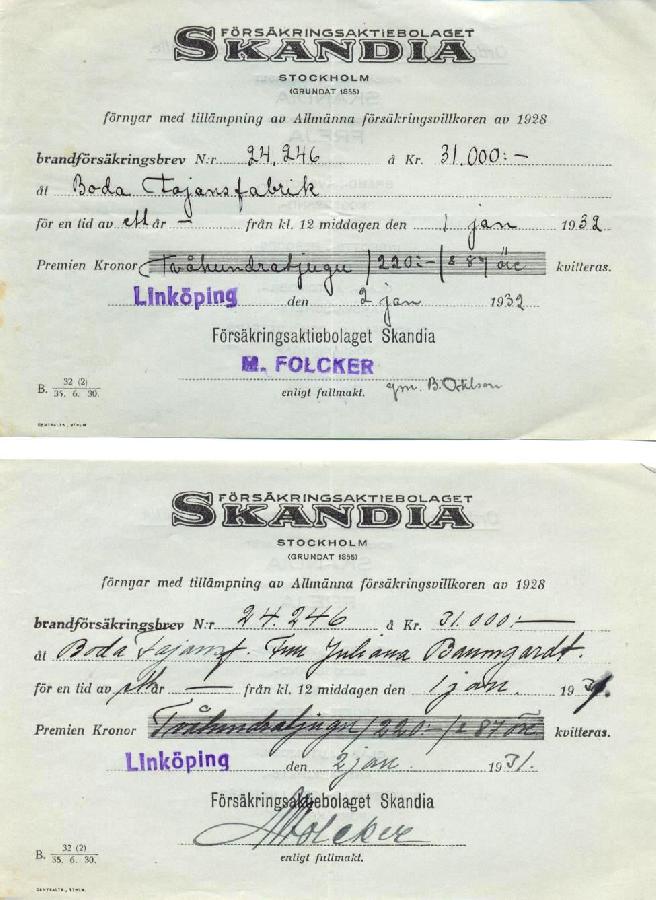 FÖRSÄKRINGSAKTIEBOLAGET
SKANDIA
STOCKHOLM
(GRUNDAT 1855)
förnyar med tillämpning av Allmänna försäkringsvillkoren av 1928
brandförsäkringsbrev N:r 24,246 å Kr. 31.000:-
åt Boda Fajansfabrik
för en tid av ett år — från kl. 12 middagen den 1 jan 1932
Premien Kronor Tvåhundratjugu /220:-/ & 87 öre kvitteras.
Linköping den 2 jan 1932
Försäkringsaktiebolaget Skandia
M. FOLCKER
enligt fullmakt. gm. B.
B. 32 (2) / 35. 6. 30.
FÖRSÄKRINGSAKTIEBOLAGET
SKANDIA
STOCKHOLM
(GRUNDAT 1855)
förnyar med tillämpning av Allmänna försäkringsvillkoren av 1928
brandförsäkringsbrev N:r 24.246 å Kr. 31.000:—
åt Boda Fajansf. Fru Juliana Baumgardt.
för en tid av ett år — från kl. 12 middagen den 1 jan. 1931.
Premien Kronor Tvåhundratjugu /220:-/ & 87 öre kvitteras.
Linköping den 2 jan. 1931.
Försäkringsaktiebolaget Skandia
MFolcker
enligt fullmakt.
B. 32 (2) / 35. 6. 30.